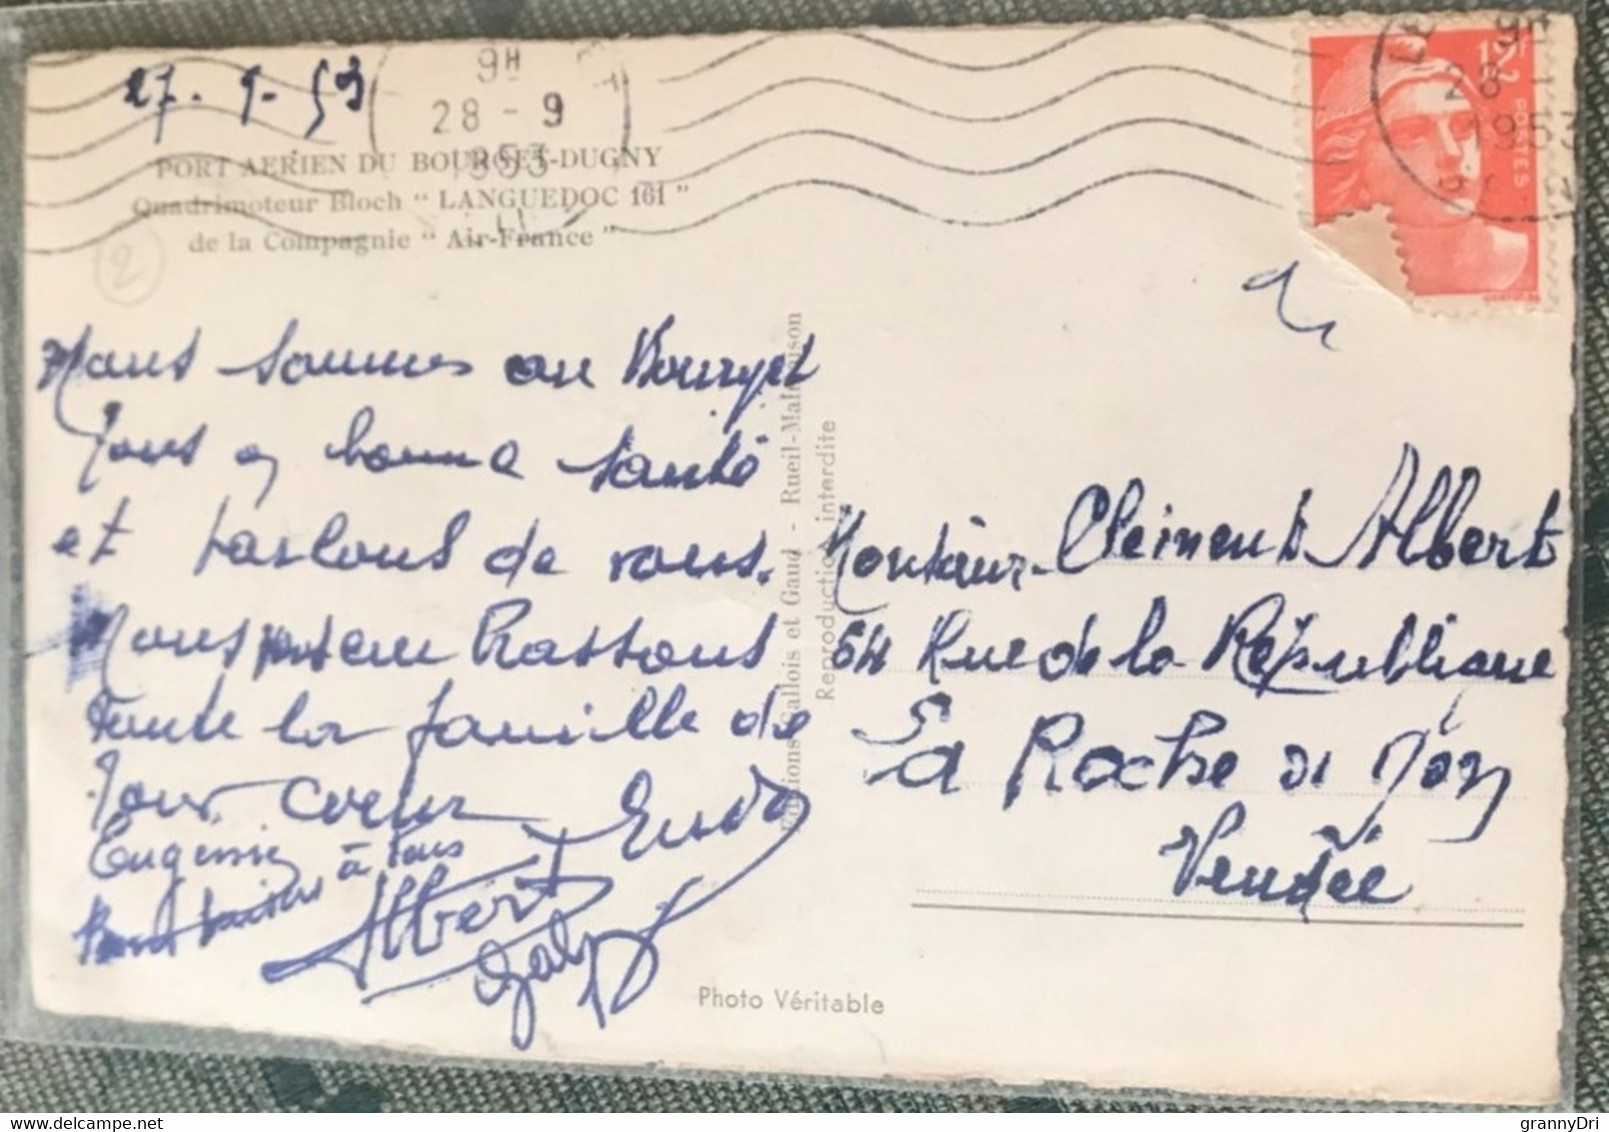 27.9.53
9H
28 - 9
1953
PORT AERIEN DU BOURGET-DUGNY
Quadrimoteur Bloch " LANGUEDOC 161 "
de la Compagnie " Air-France "
2
Nous sommes au Bourget
Tous en bonne santé
et parlons de vous.
Nous embrassons
toute la famille de
Tout coeur
Eugénie
à tous
Albert
Gaby
Editions Gallois et Gaud - Rueil-Malmaison
Reproduction interdite
F
POSTES
9H
28 -
1953
Monsieur Clément Albert
54 Rue de la République
La Roche S/ Yon
Vendée
Photo Véritable
grannyDri